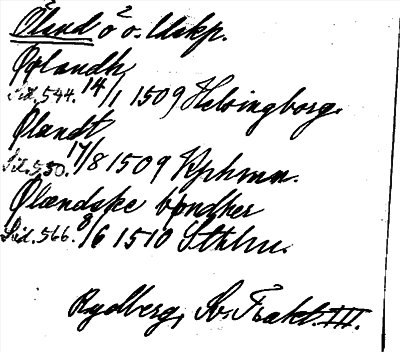 Öland ö² o. ldskp.
Øylandh
Sid. 544. 14/1 1509 Helsingborg.
Ølandt
Sid. 550. 17/8 1509 Kphmn.
Ølændske bøndher
Sid. 566. 8/6 1510 Sthlm.
Rydberg, Sv. Trakt. III.